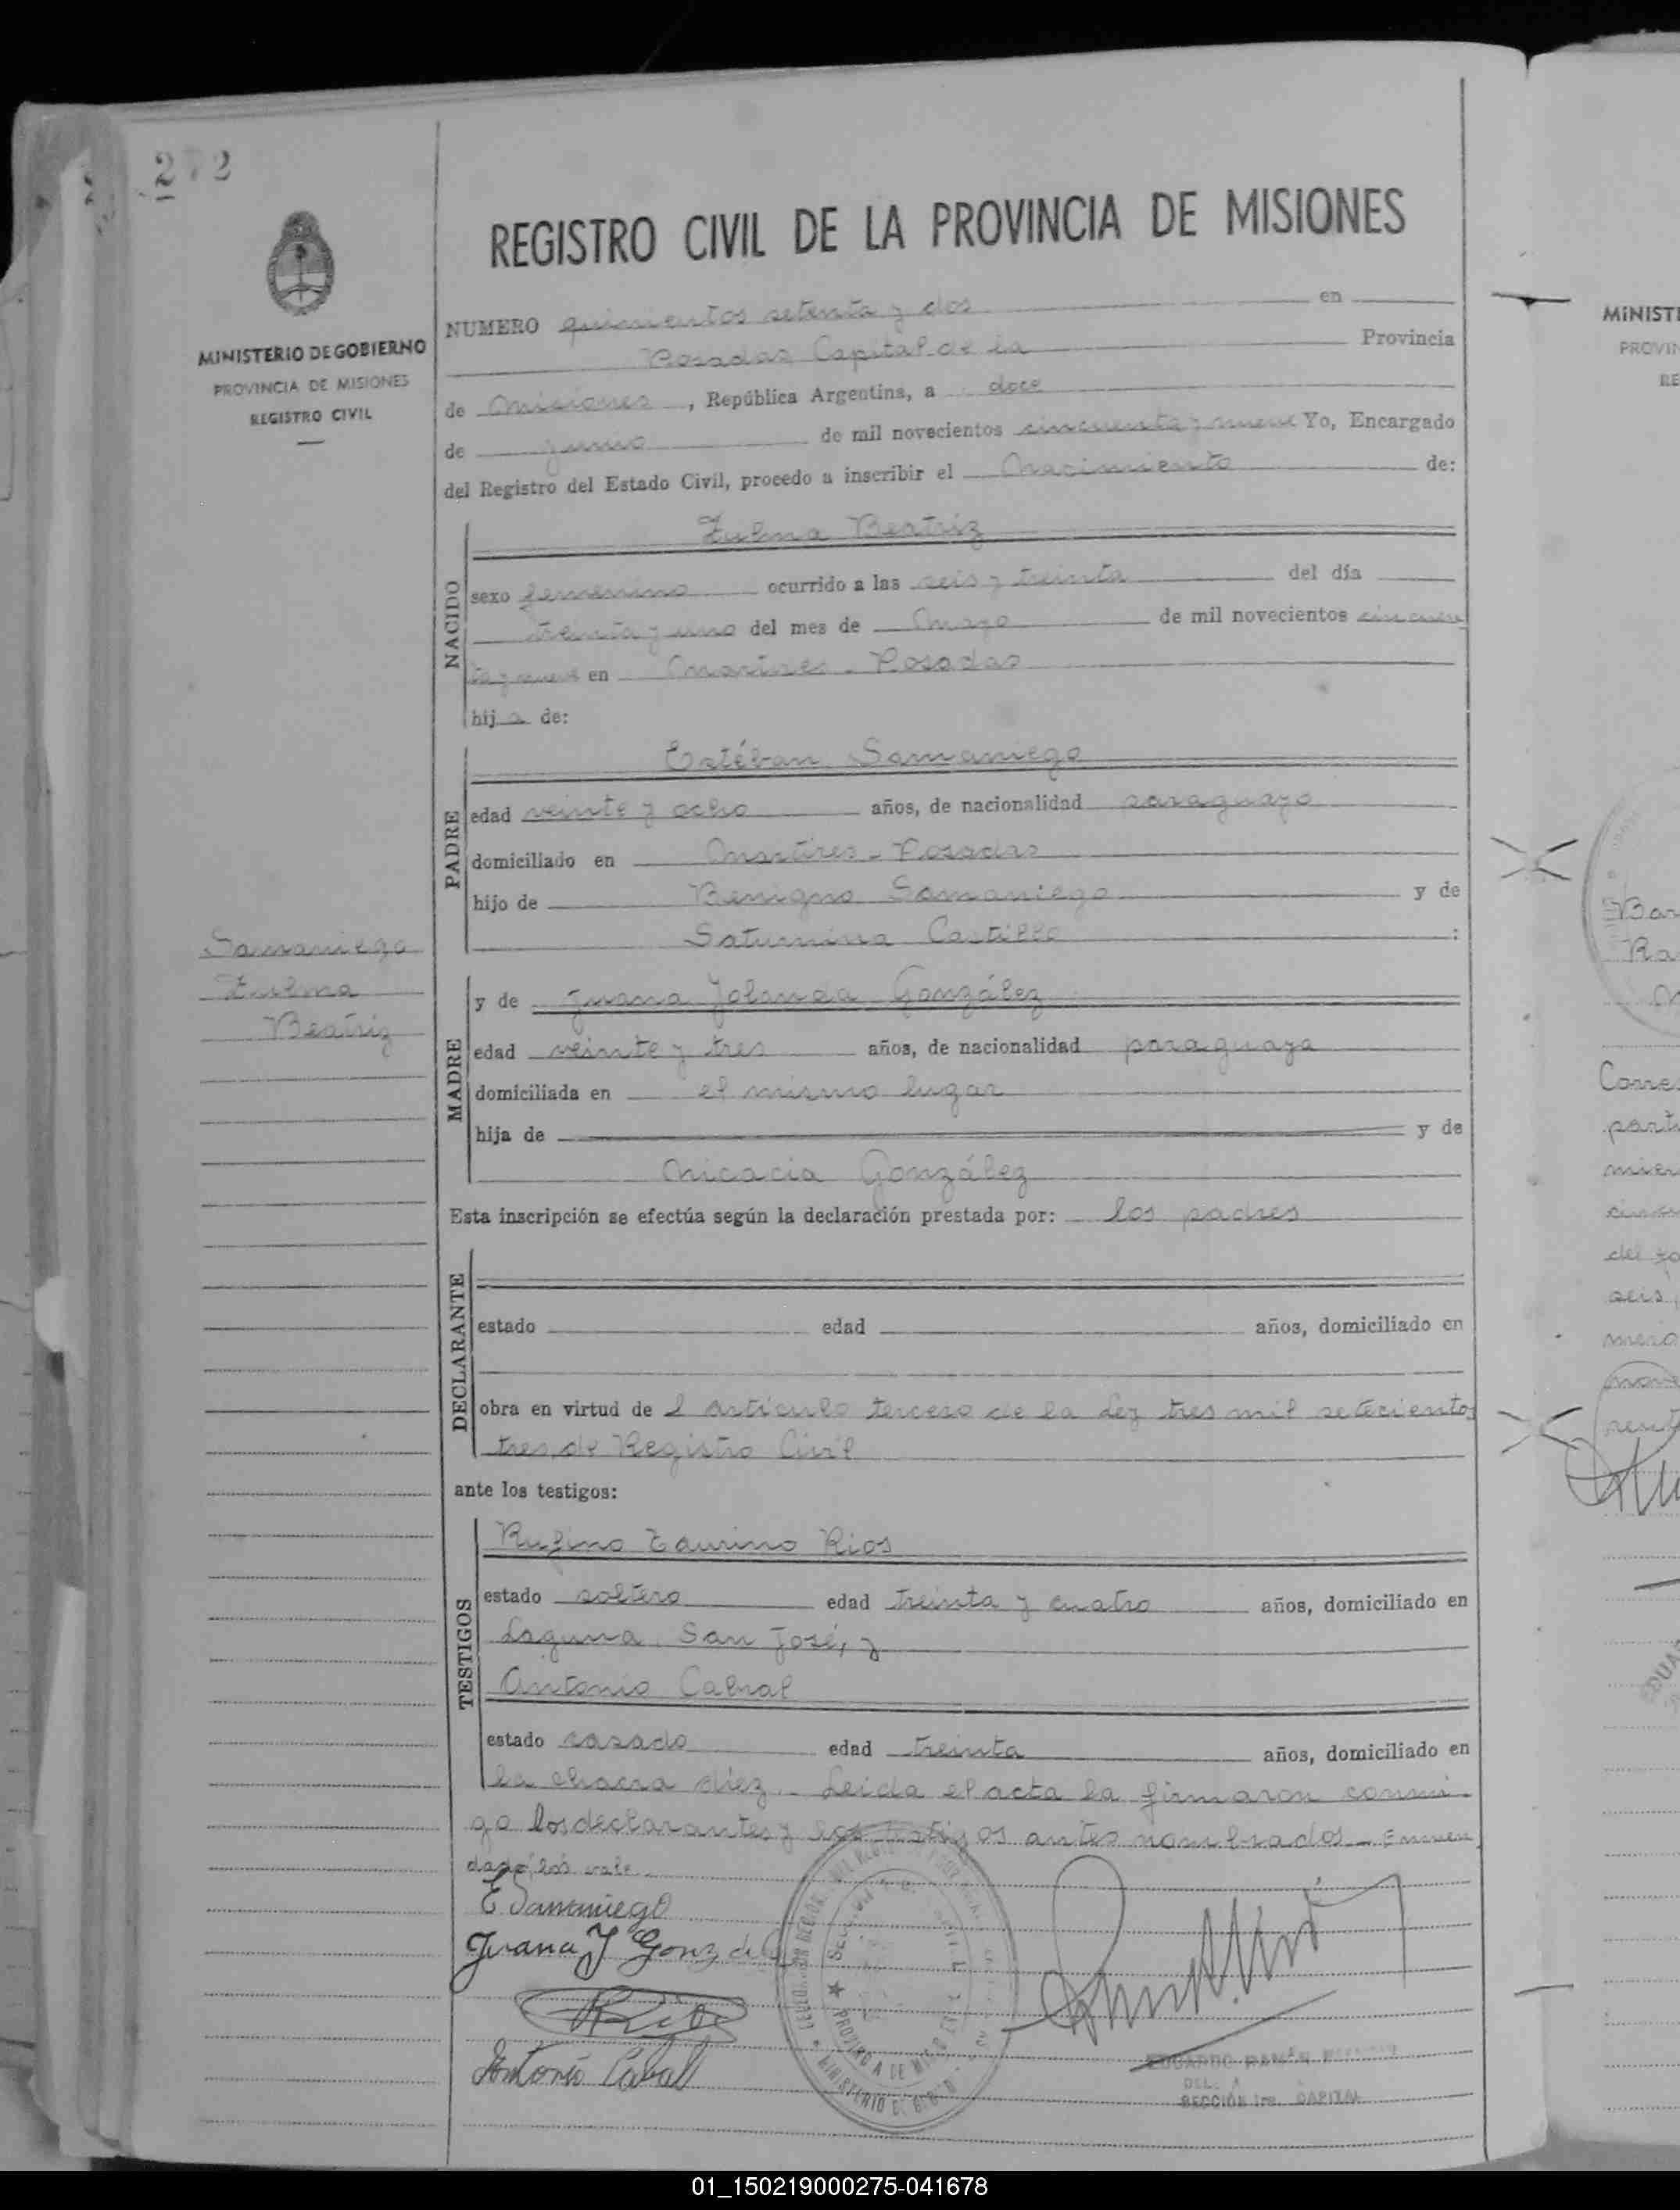 272
MINISTERIO DE GOBIERNO
PROVINCIA DE MISIONES
REGISTRO CIVIL
Samaniego
Zulma
Beatriz
REGISTRO CIVIL DE LA PROVINCIA DE MISIONES
NUMERO quinientos setenta y dos en
Posadas Capital de la Provincia
de Misiones, República Argentina, a doce
de junio de mil novecientos cincuenta y nueve Yo, Encargado
del Registro del Estado Civil, procedo a inscribir el Nacimiento de:
NACIDO
Zulma Beatriz
sexo femenino ocurrido a las seis y treinta del día
treinta y uno del mes de Mayo de mil novecientos cincuen
ta y nueve en Martires - Posadas
hija de:
PADRE
Estéban Samaniego
edad veinte y ocho años, de nacionalidad paraguayo
domiciliado en Martires - Posadas
hijo de Benigno Samaniego y de
Saturnina Castillo :
MADRE
y de Juana Jolanda González
edad veinte y tres años, de nacionalidad paraguaya
domiciliada en el mismo lugar
hija de y de
Nicacia González
Esta inscripción se efectúa según la declaración prestada por: los padres
DECLARANTE
estado edad años, domiciliado en
obra en virtud de l artículo tercero de la Ley tres mil setecientos
tres de Registro Civil
ante los testigos:
TESTIGOS
Rufino Taurino Rios
estado soltero edad treinta y cuatro años, domiciliado en
Laguna San José, y
Antonio Cabral
estado casado edad treinta años, domiciliado en
la chacra diez.- Leida el acta la firmaron conmi-
go los declarantes y los testigos antes nombrados - Enmen
dado: los vale
E Samaniego
Juana J Gonzalez
Antonio Cabral
PROVINCIA DE MISIONES
MINISTERIO DE GOBIERNO
EDUARDO RAMÓN
SECCIÓN 1ra. CAPITAL
MINIST
PROVIN
RE
Bar
Ra
Corres
parti
mien
del
seis
mero
EDUA
01_150219000275-041678